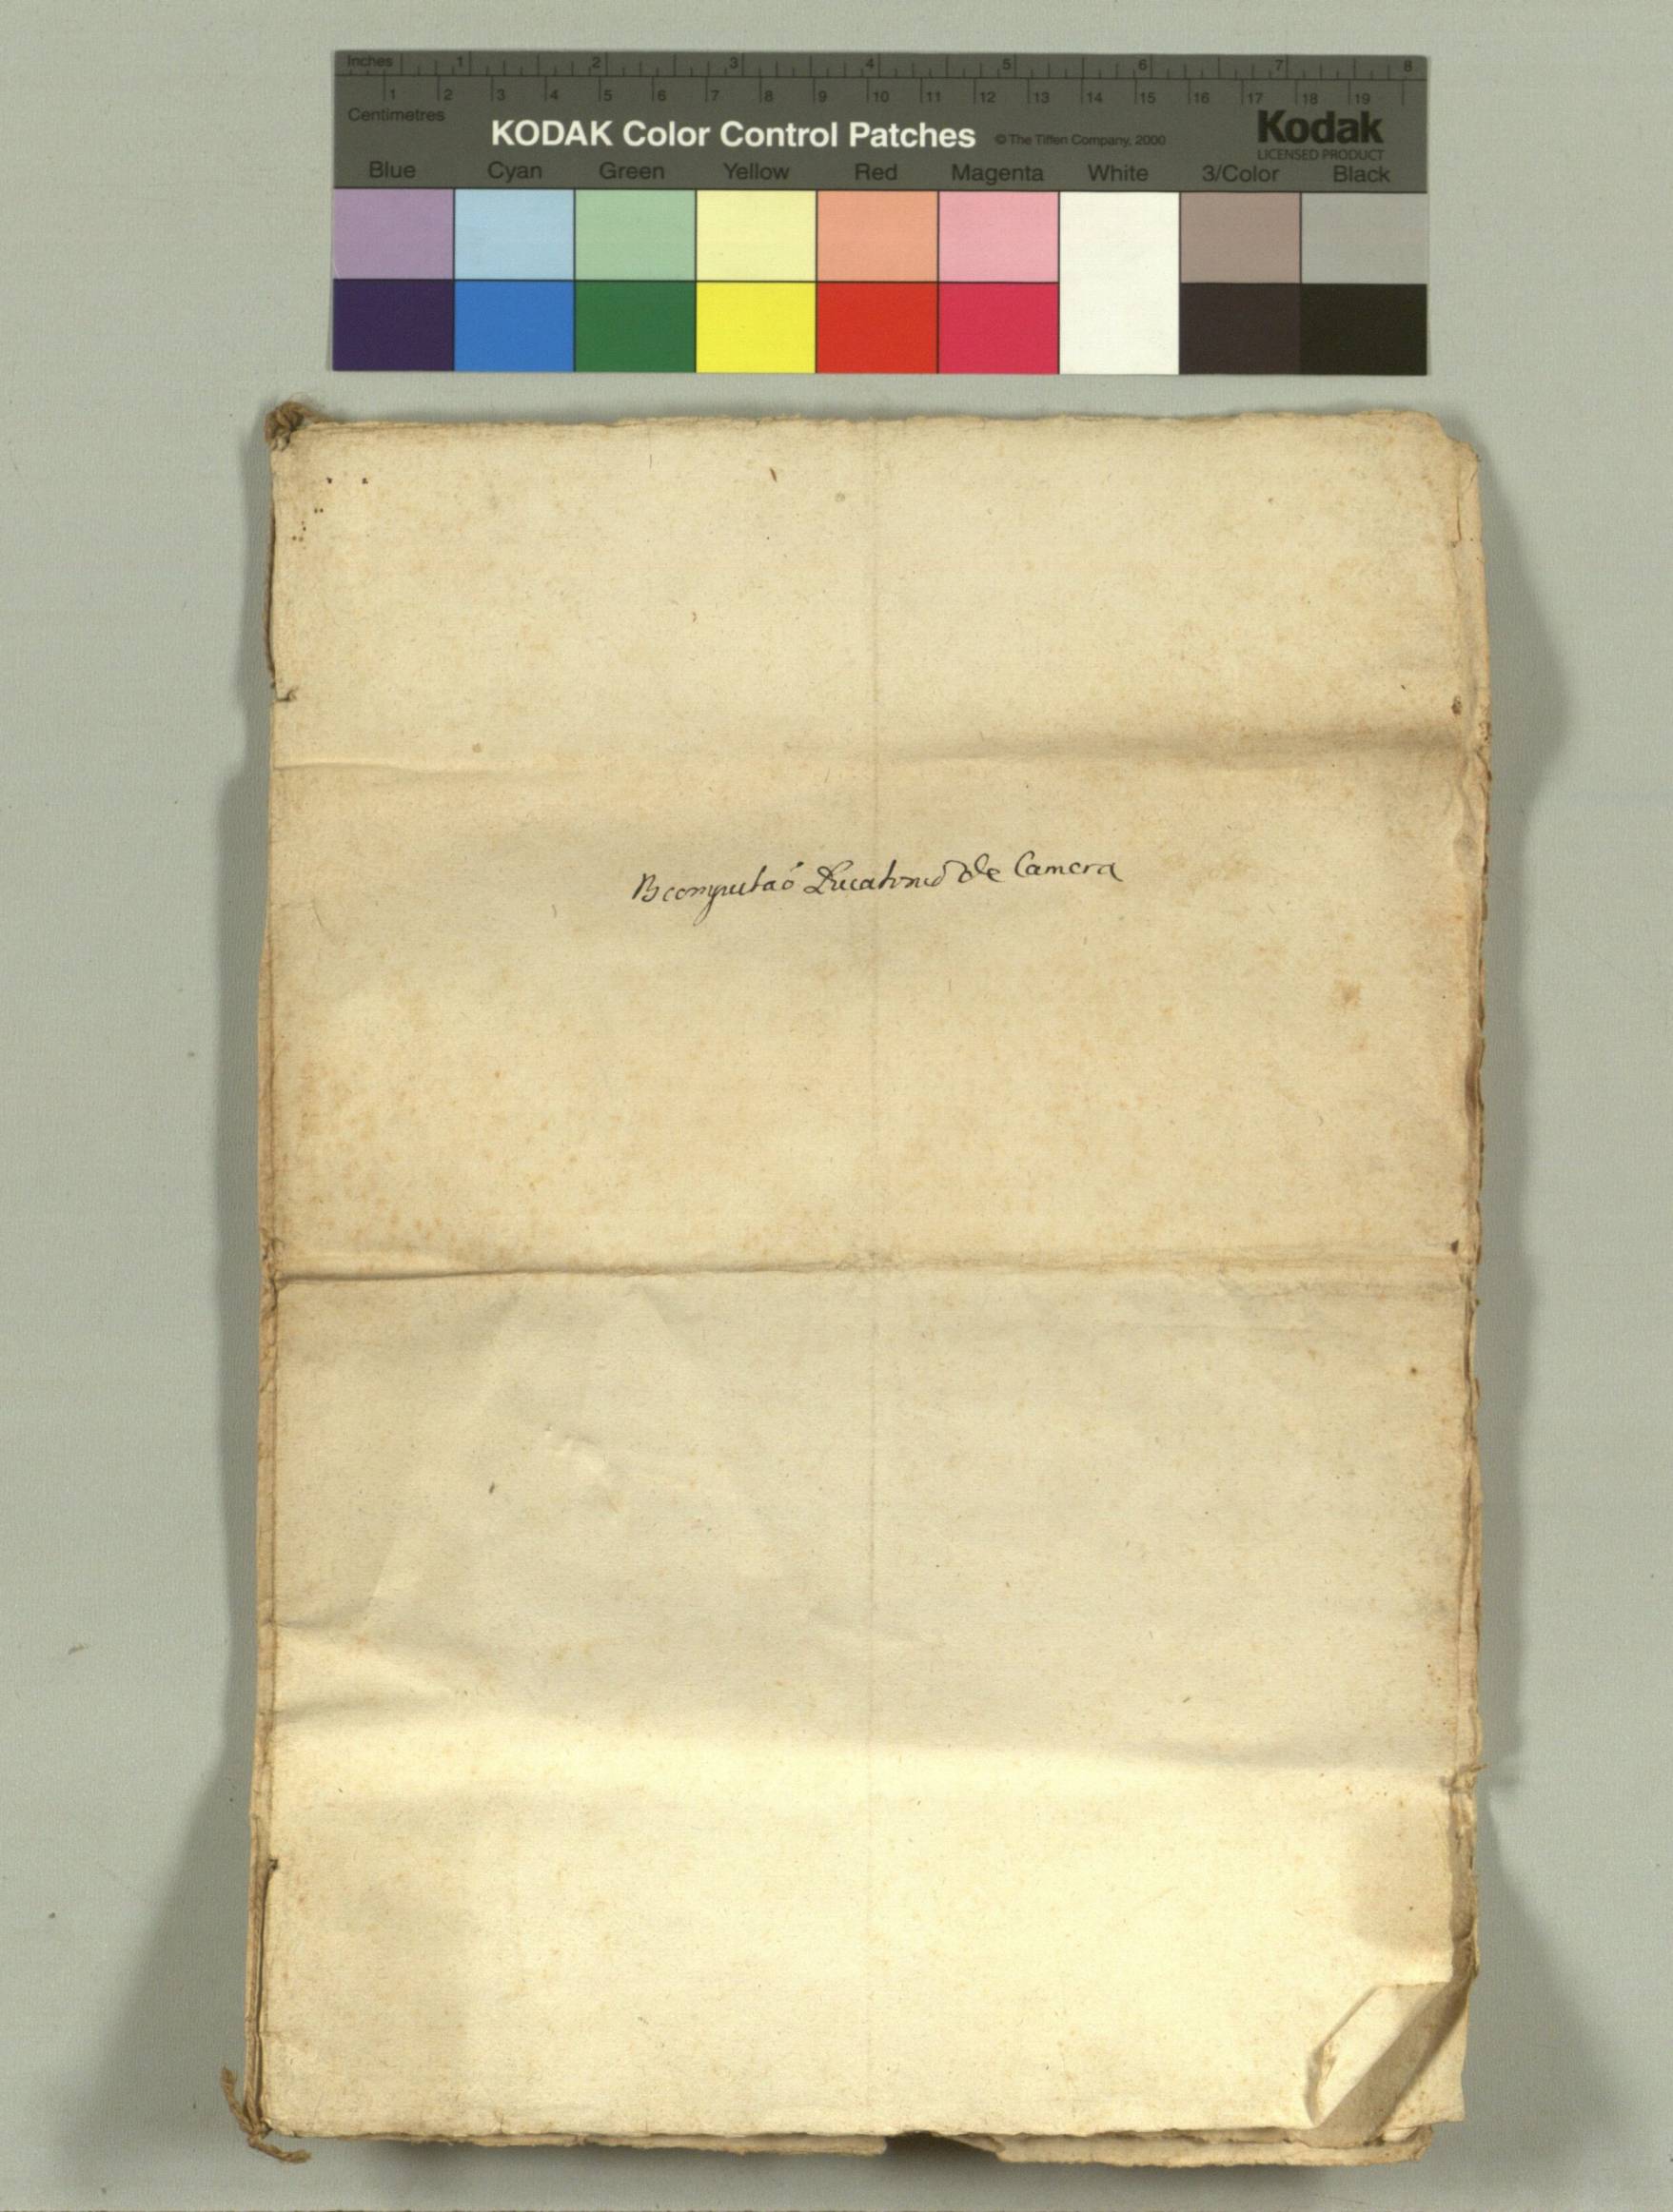 Inches 1 2 3 4 5 6 7 8
1 2 3 4 5 6 7 8 9 10 11 12 13 14 15 16 17 18 19
Centimetres
KODAK Color Control Patches © The Tiffen Company, 2000 Kodak
LICENSED PRODUCT
Blue Cyan Green Yellow Red Magenta White 3/Color Black
de Camera